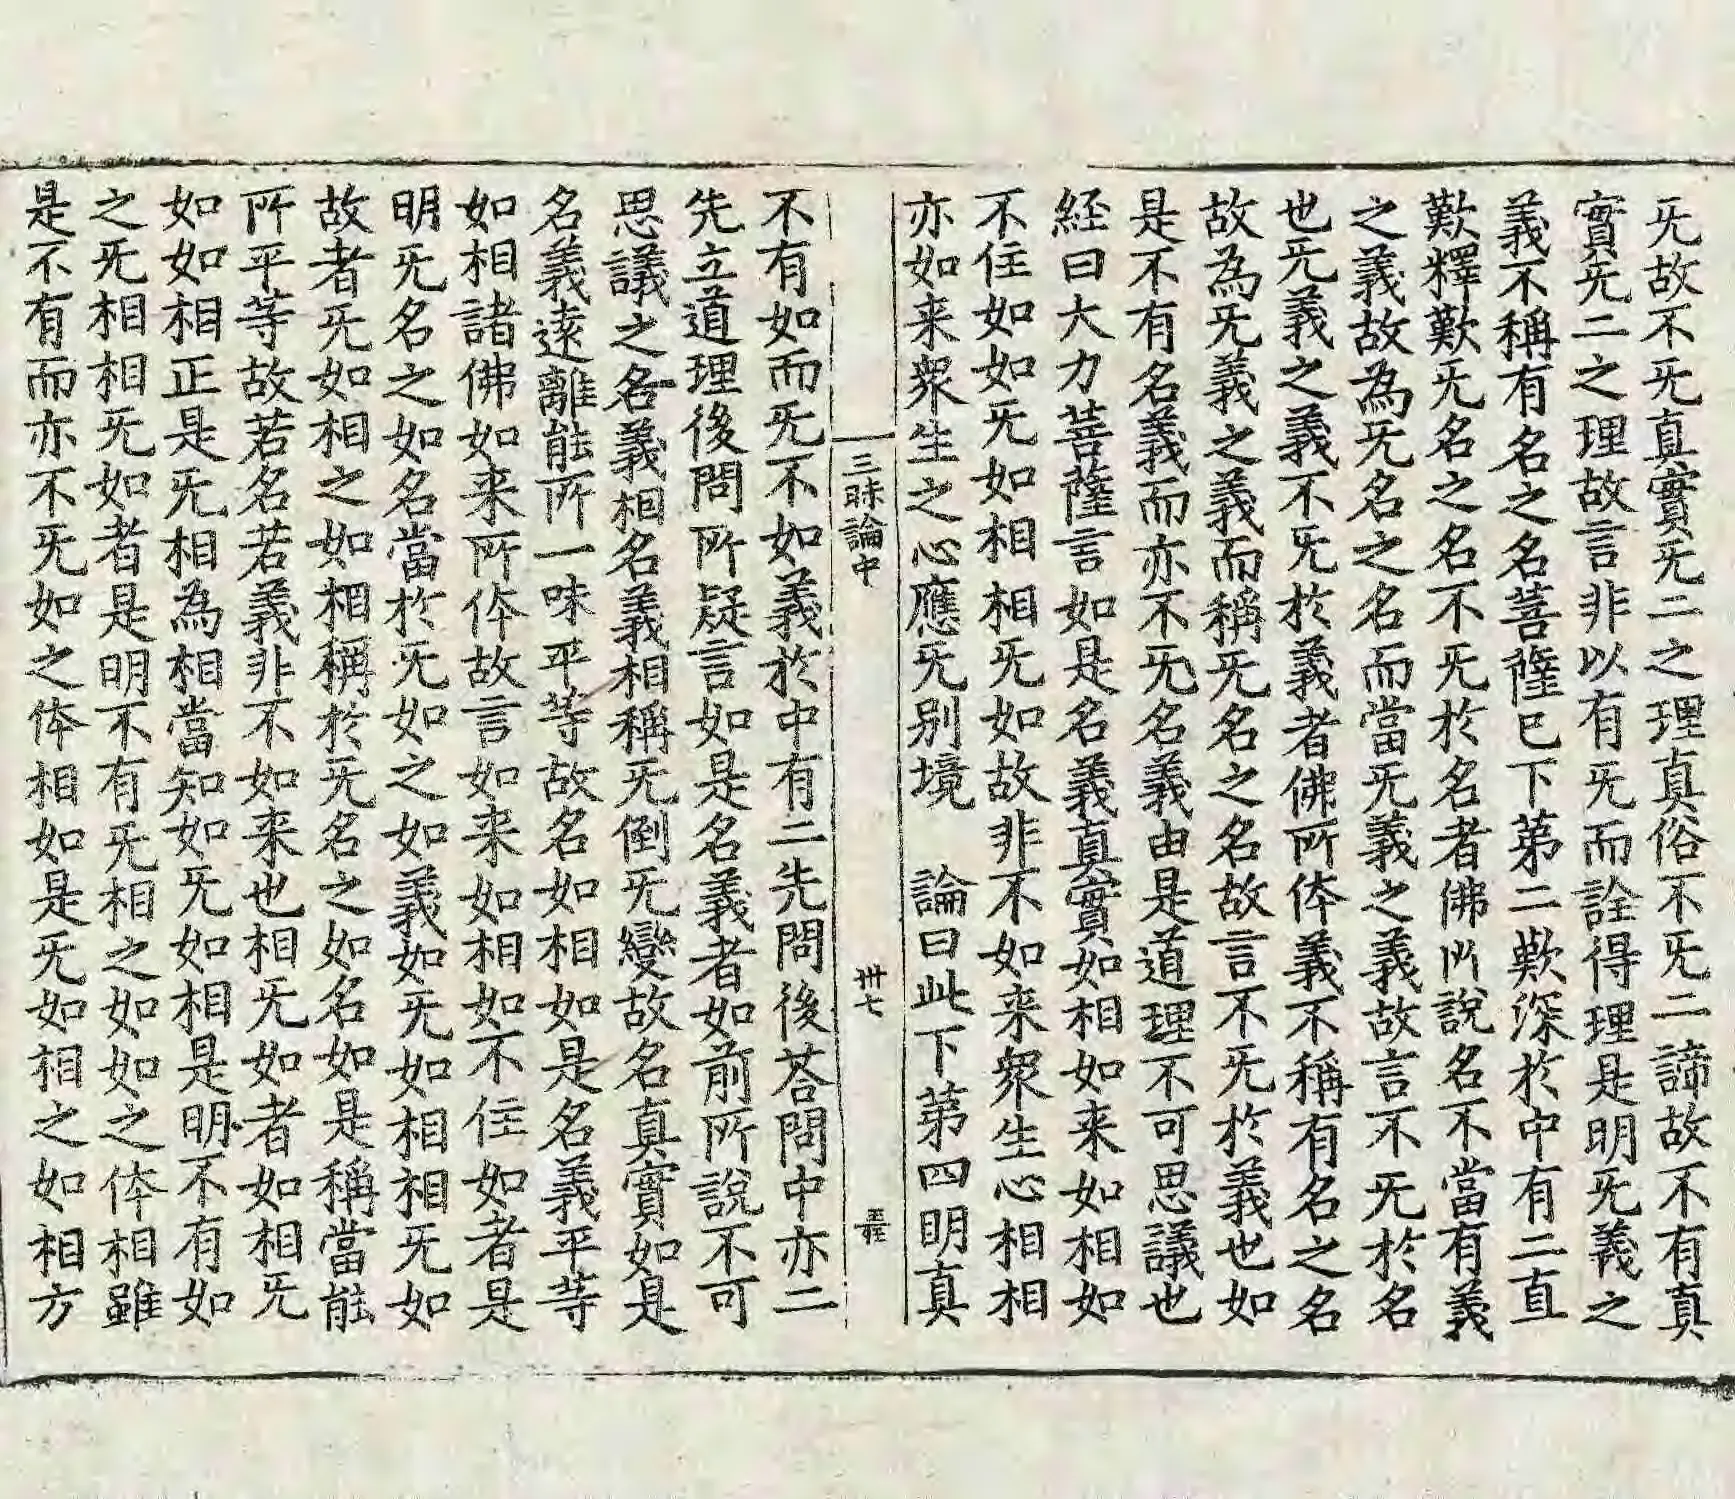 旡故不旡真實旡二之理真俗不旡二諦故不有真
實旡二之理故言非以有旡而詮得理是明旡義之
義不稱有名之名菩薩已下第二歎深於中有二直
歎釋歎旡名之名不旡於名者佛所說名不當有義
之義故為旡名之名而當旡義之義故言不旡於名
也旡義之義不旡於義者佛所体義不稱有名之名
故為旡義之義而稱旡名之名故言不旡於義也如
是不有名義而亦不旡名義由是道理不可思議也
経曰大力菩薩言如是名義真實如相如来如相如
不住如如旡如相相旡如故非不如来衆生心相相
亦如来衆生之心應旡別境　論曰此下第四明真
三昧論中　卅七　王桱
不有如而旡不如義於中有二先問後荅問中亦二
先立道理後問所疑言如是名義者如前所說不可
思議之名義相名義相稱旡倒旡變故名真實如是
名義遠離能所一味平等故名如相如是名義平等
如相諸佛如来所体故言如来如相如不住如者是
明旡名之如名當於旡如之如義如旡如相相旡如
故者旡如相之如相稱於旡名之如名如是稱當能
所平等故若名若義非不如来也相旡如者如相旡
如如相正是旡相為相當知如旡如相是明不有如
之旡相相旡如者是明不有旡相之如如之体相雖
是不有而亦不旡如之体相如是旡如相之如相方